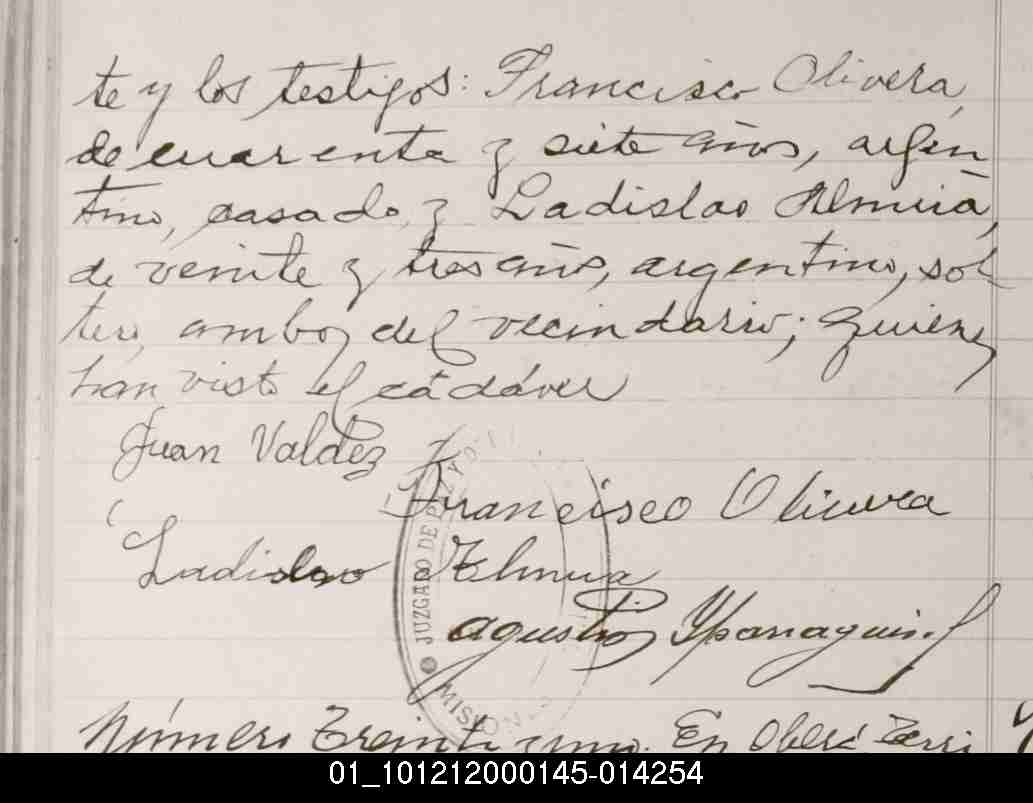 te y los testigos: Francisco Olivera,
de cuarenta y siete años, argen
tino, casado, y Ladislao Almua,
de veinte y tres años, argentino, sol
tero, ambos del vecindario; quienes
han visto el cadáver
Juan Valdez
Francisco Olivera
Ladislao Almua
JUZGADO DE PAZ Y
MISIONES
Agustin
Número Treinta y uno. En Oberá Terri
01_101212000145-014254